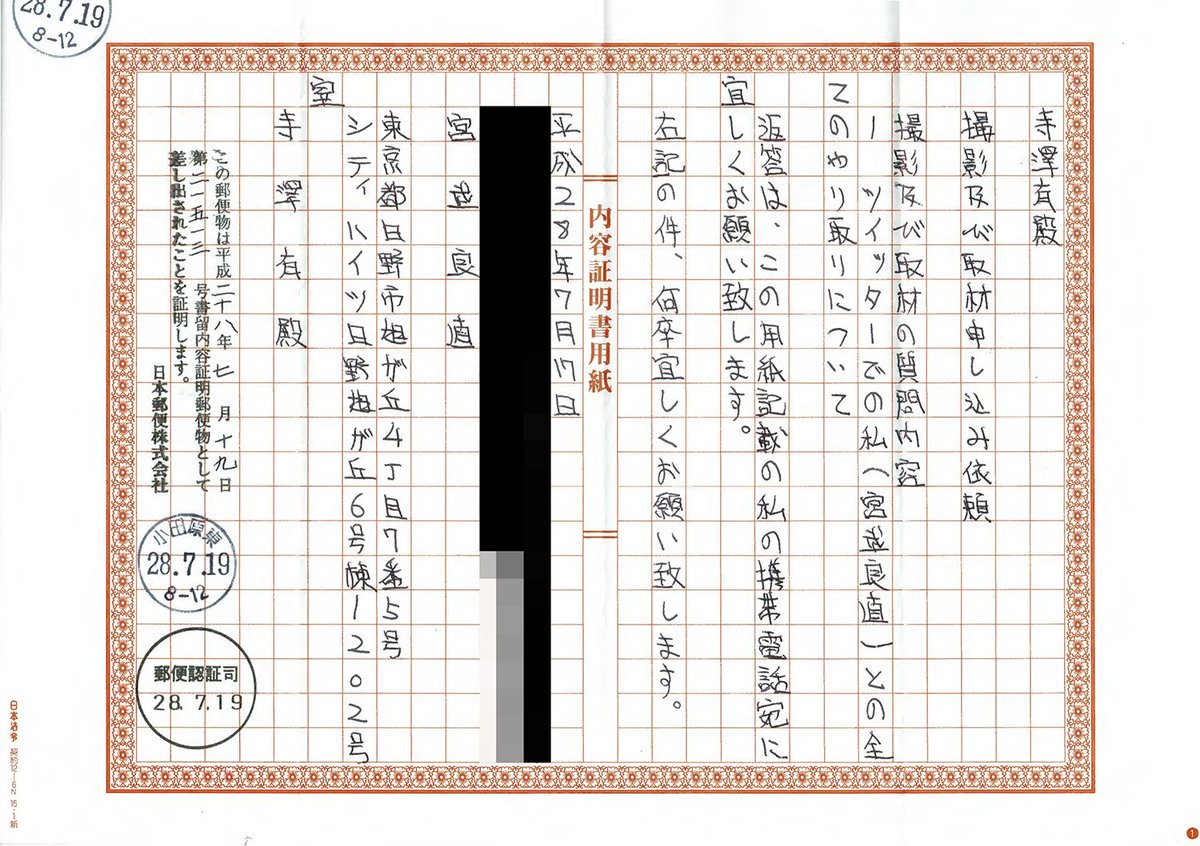 28.7.19
8-12
寺澤有殿
撮影及び取材申し込み依頼
撮影及び取材の質問内容
ーツイッターでの私(宮並良直)との全
てのやり取りについて
返答は、この用紙記載の私の携帯電話宛に
宜しくお願い致します。
右記の件、何卒宜しくお願い致します。
内容証明書用紙
平成28年7月17日
宮並良直
東京都日野市旭が丘4丁目7番5号
シティハイツ日野旭が丘6号棟1202号
室
寺澤有殿
この郵便物は平成二十八年七月十九日
第二一五一三号書留内容証明郵便物として
差し出されたことを証明します。
日本郵便株式会社
小田原東
28.7.19
8-12
郵便認証司
28.7.19
日本法令 契約12-6N 15・1新
1